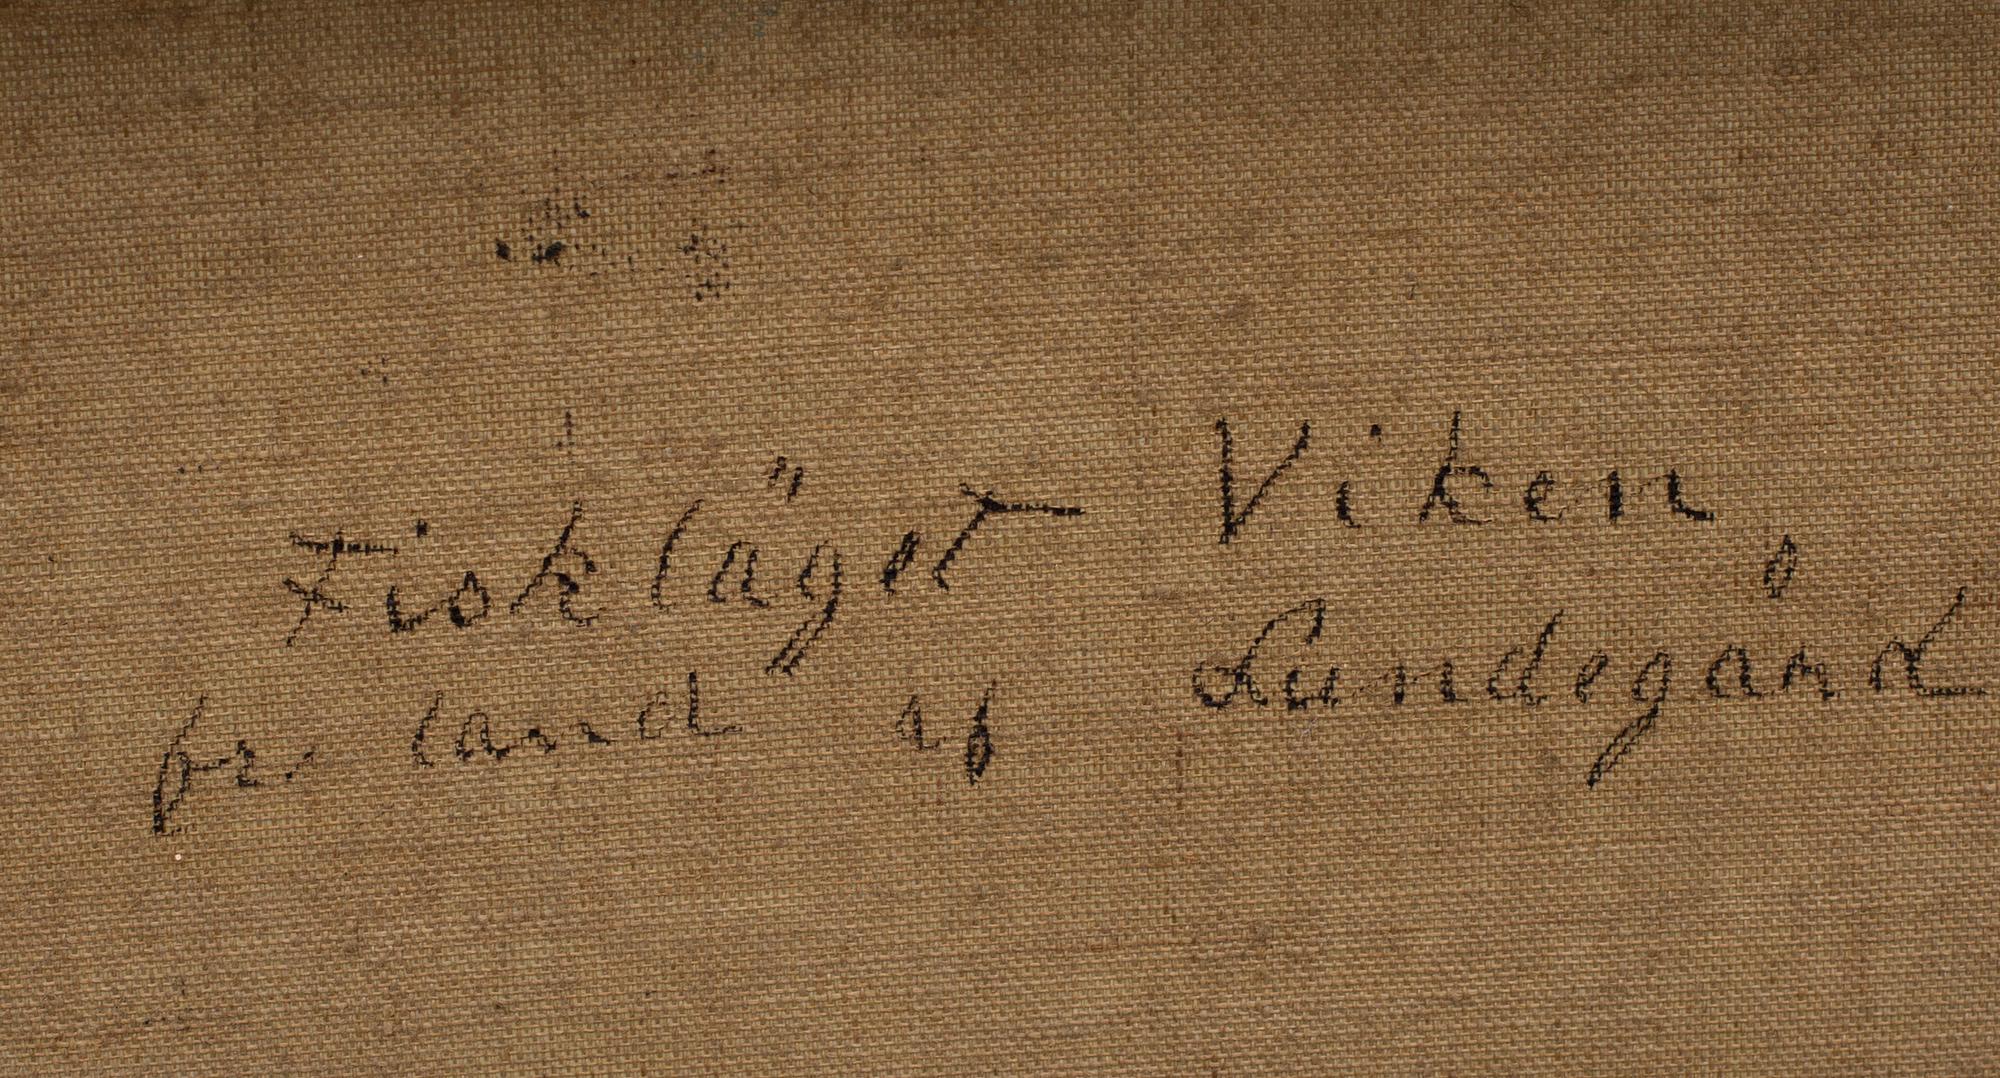 Fiskläget Viken,
fr. land af Lundegård